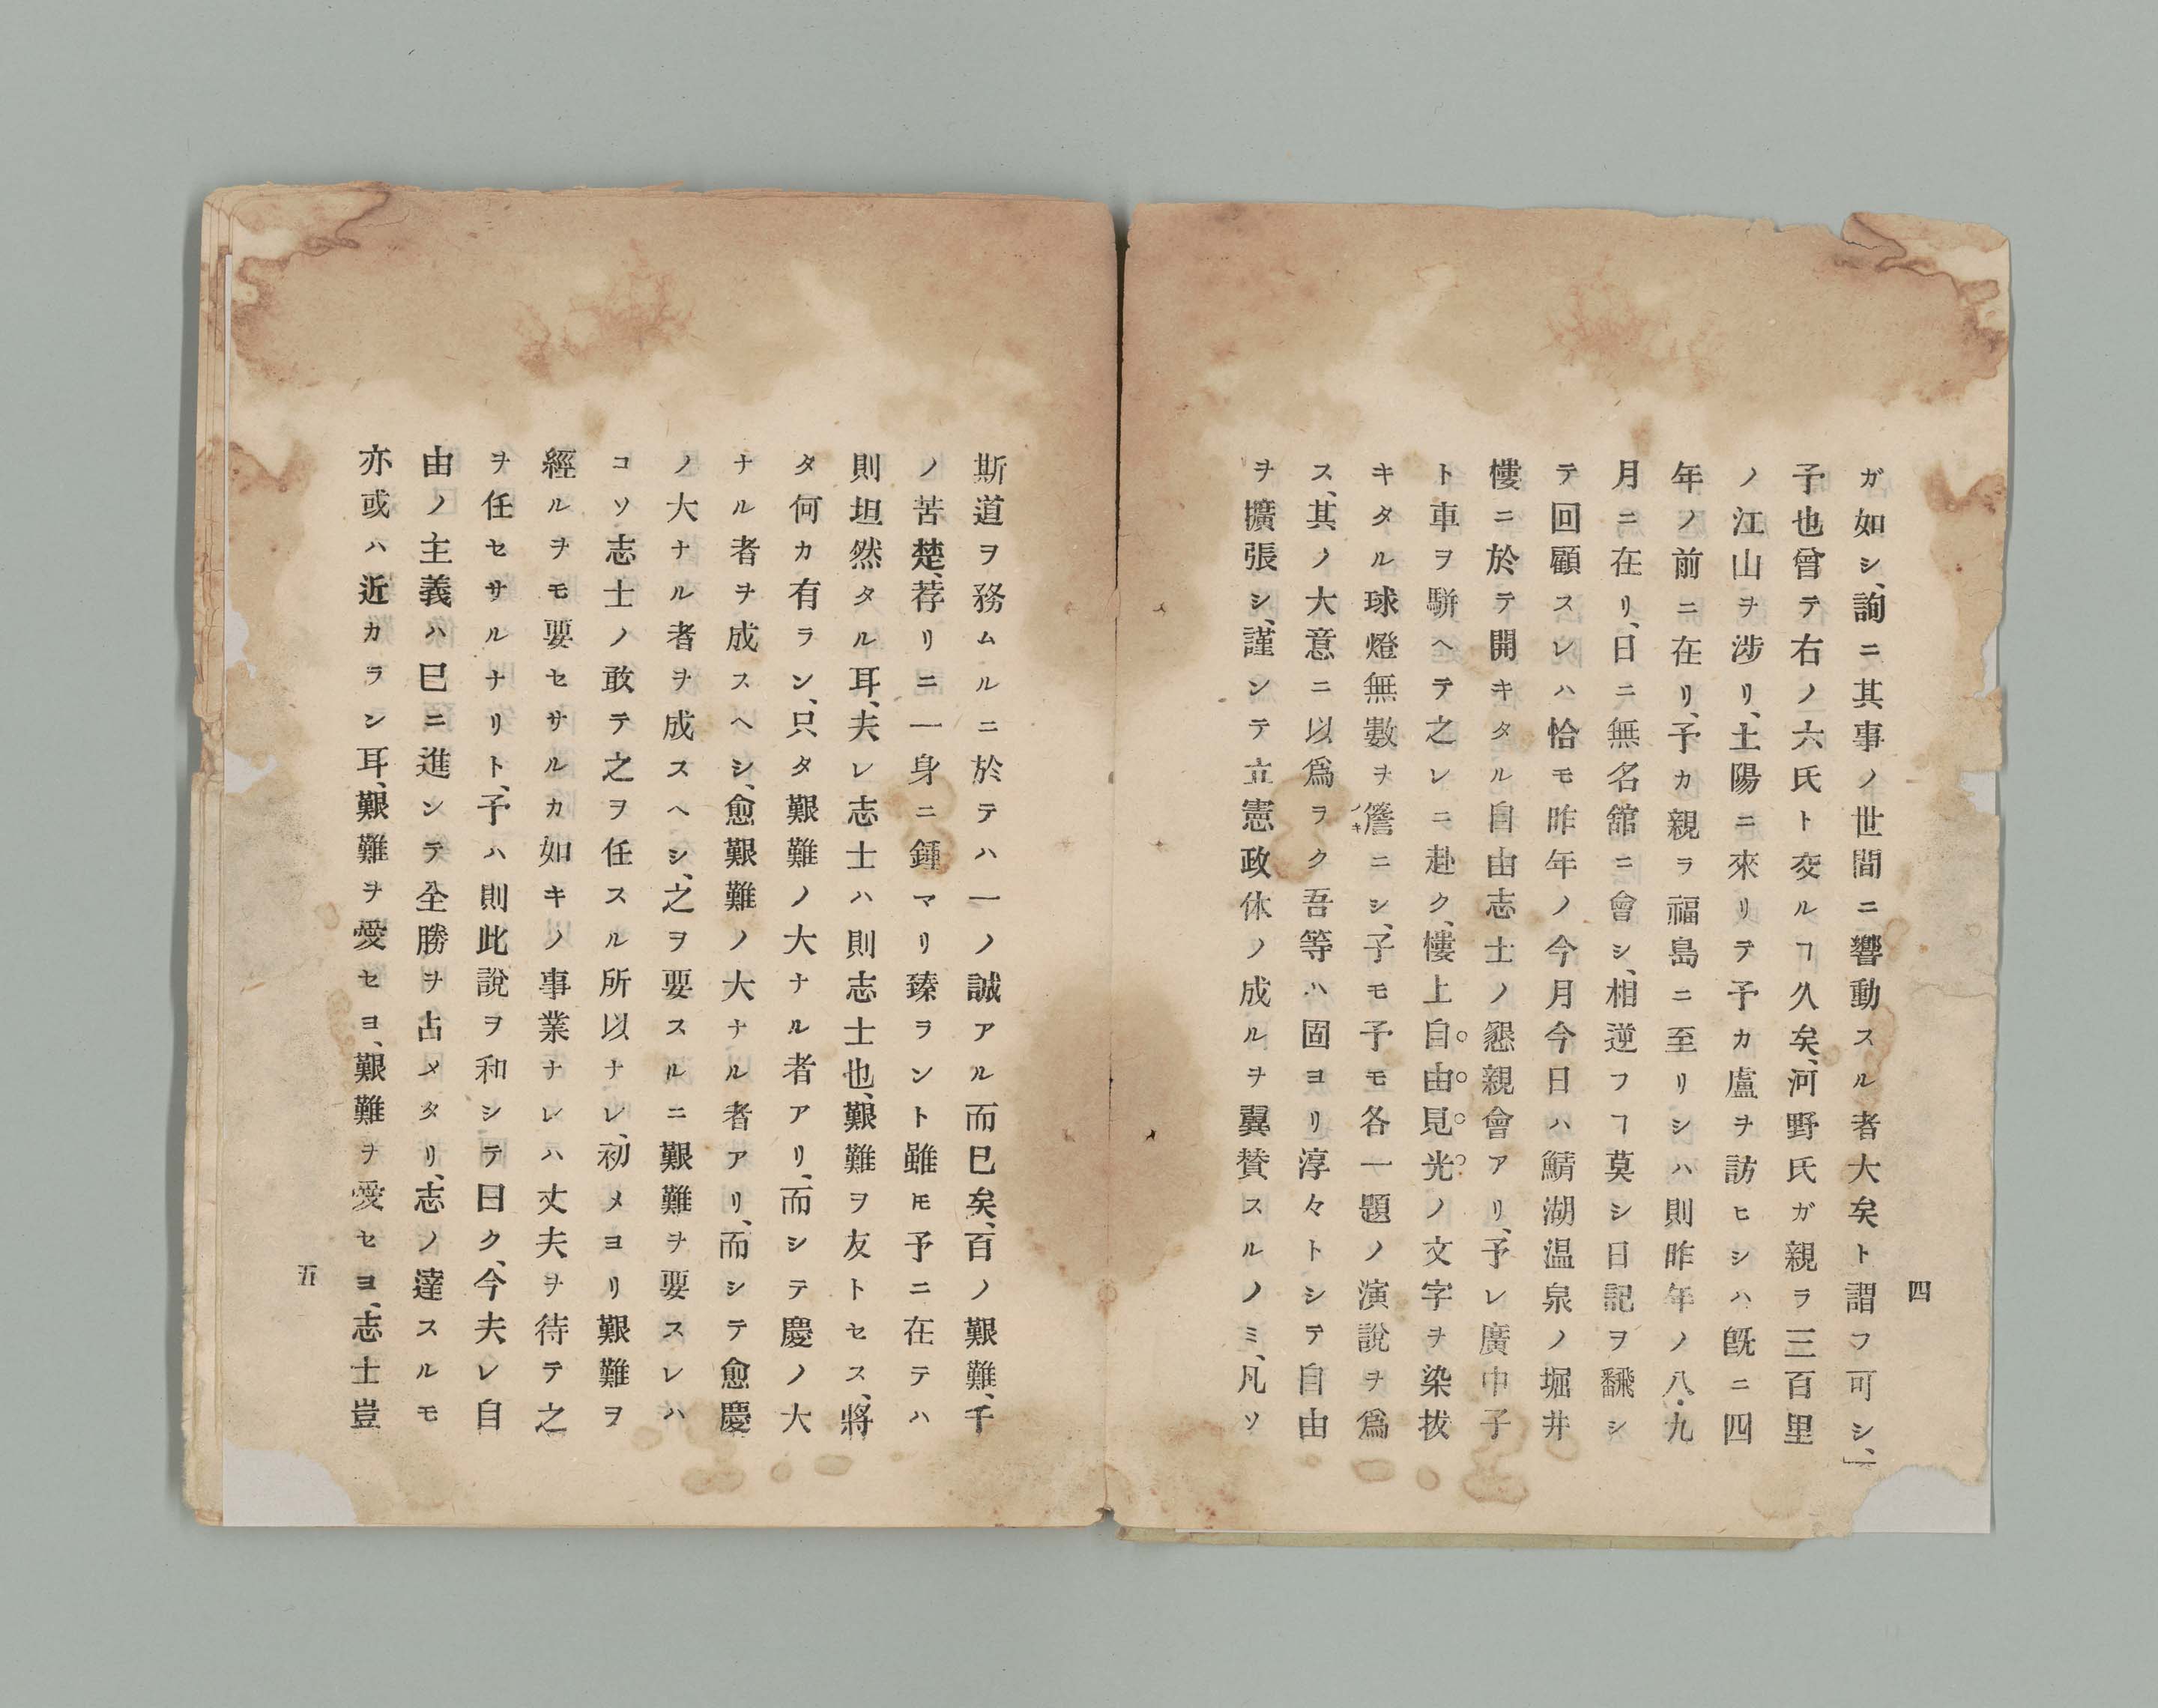 四
ガ如シ、詢ニ其事ノ世間ニ響動スル者大矣ト謂フ可シ、」
予也曾テ右ノ六氏ト交ルヿ久矣、河野氏ガ親ラ三百里
ノ江山ヲ涉リ、土陽ニ來リテ予カ廬ヲ訪ヒシハ旣ニ四
年ノ前ニ在リ、予カ親ラ福島ニ至リシハ則昨年ノ八・九
月ニ在リ、日ニ無名舘ニ會シ、相逆フヿ莫シ日記ヲ飜シ
テ回顧スレハ恰モ昨年ノ今月今日ハ鯖湖温泉ノ堀井
樓ニ於テ開キタル自由志士ノ懇親會アリ、予レ廣中子
ト車ヲ駢ヘテ之レニ赴ク、樓上自由見光ノ文字ヲ染拔
キタル球燈無數ヲ簷ノキニシ、子モ予モ各一題ノ演說ヲ爲
ス、其ノ大意ニ以爲ラク吾等ハ固ヨリ淳々トシテ自由
ヲ擴張シ、謹ンテ立憲政体ノ成ルヲ翼賛スルノミ、凡ソ
斯道ヲ務ムルニ於テハ一ノ誠アル而巳矣、百ノ艱難、千
ノ苦楚、荐リニ一身ニ鍾マリ臻ラント雖モ予ニ在テハ
則坦然タル耳、夫レ志士ハ則志士也、艱難ヲ友トセス、將
タ何カ有ラン、只タ艱難ノ大ナル者アリ、而シテ慶ノ大
ナル者ヲ成スヘシ、愈艱難ノ大ナル者アリ、而シテ愈慶
ノ大ナル者ヲ成スヘシ、之ヲ要スルニ艱難ヲ要スレハ
コソ、志士ノ敢テ之ヲ任スル所以ナレ、初メヨリ艱難ヲ
經ルヲモ要セサルカ如キノ事業ナレハ丈夫ヲ待テ之
ヲ任セサルナリト、予ハ則此說ヲ和シテ曰ク、今夫レ自
由ノ主義ハ巳ニ進ンテ全勝ヲ占メタリ、志ノ達スルモ
亦或ハ近カラン耳、艱難ヲ愛セヨ、艱難ヲ愛セヨ、志士豈
五